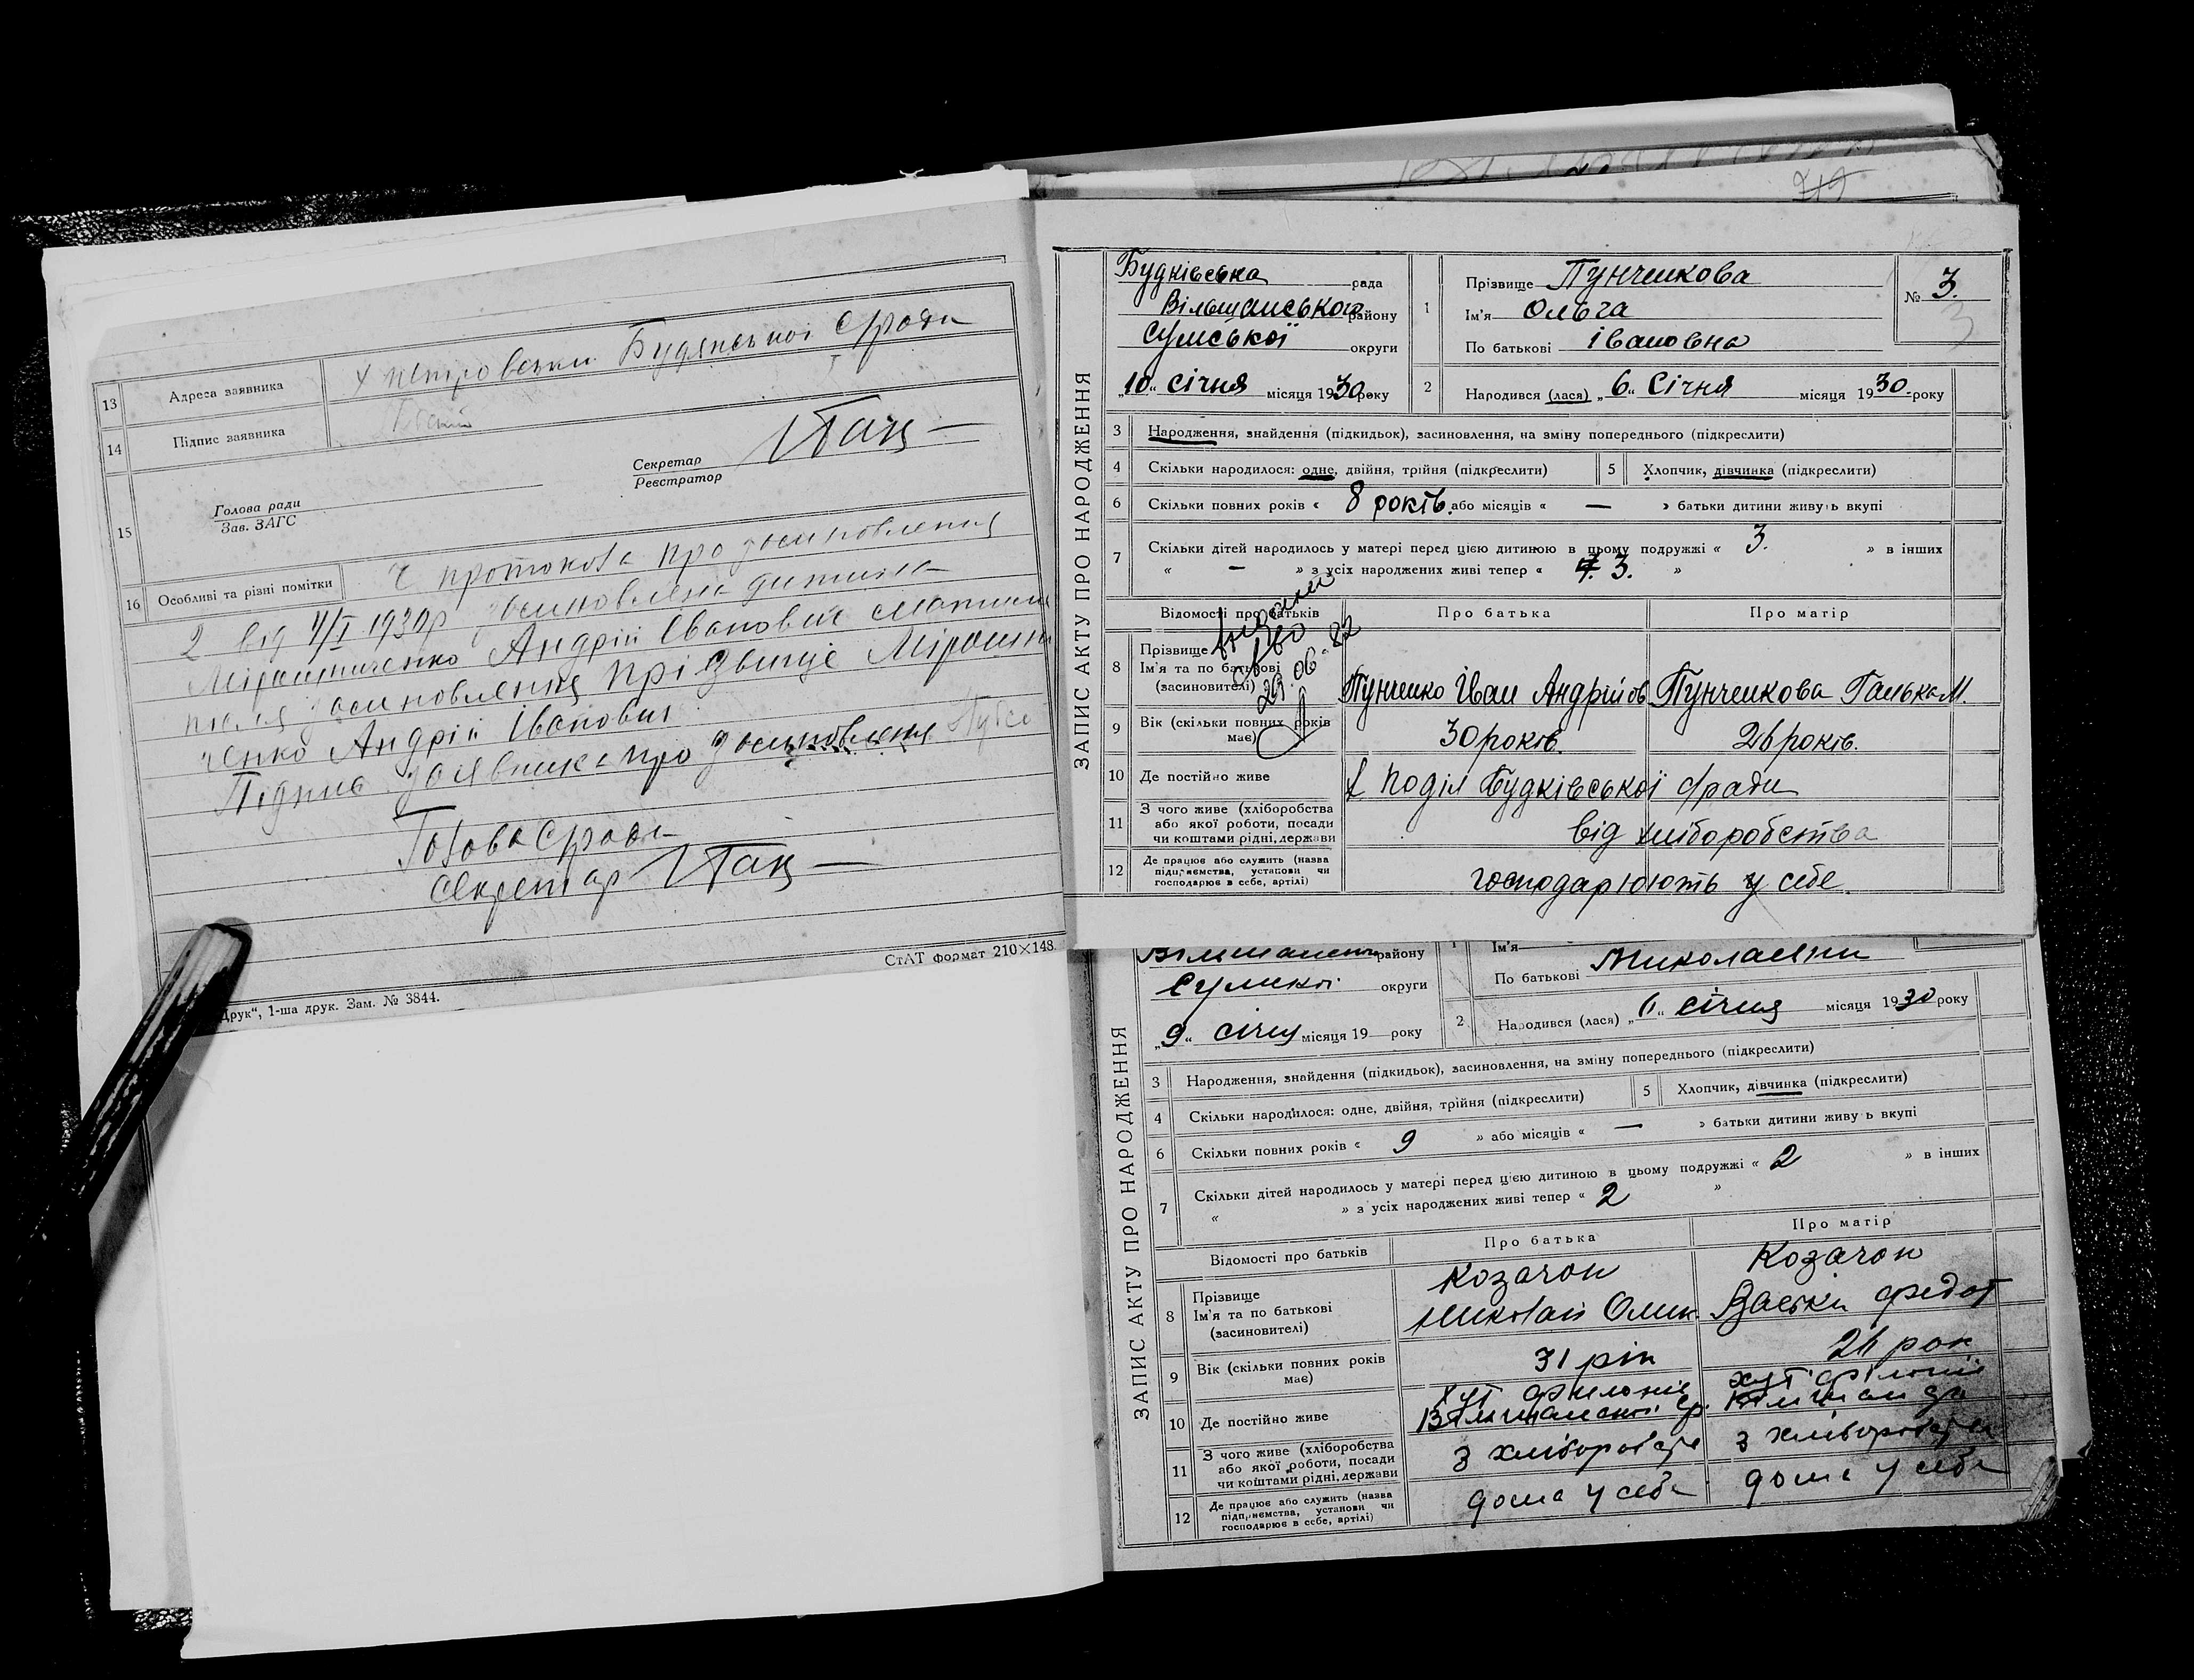 13 Адреса заявника х Петровськи Будянської с/ради
14 Підпис заявника
Секретар
Реєстратор
15 Голова ради
Зав. ЗАГС
16 Особливі та різні помітки З протокола про усиновлення
2 від 4/I 1930р усиновлена дитина
Мірошниченко Андрій Іванович матиме
після усиновлення прізвище Мірошни
ченко Андрій Іванович
Підпис заявника про усиновлення
Голова с/ради
Секретар
СтАТ формат 210×148.
Друк“, 1-ша друк. Зам. № 3844.
ЗАПИС АКТУ ПРО НАРОДЖЕННЯ
Будківська рада
Вільшанського району
Сумської округи
„10“ січня місяця 1930 року
1 Прізвище Пунченкова
Ім'я Ольга
По батькові Івановна
№ 3.
3
2 Народився (лася) „6“ Січня місяця 1930 року
3 Народження, знайдення (підкидьок), засиновлення, на зміну попереднього (підкреслити)
4 Скільки народилося: одне, двійня, трійня (підкреслити) 5 Хлопчик, дівчинка (підкреслити)
6 Скільки повних років « 8 років. або місяців « — » батьки дитини живуть вкупі
7 Скільки дітей народилось у матері перед цією дитиною в цьому подружжі « 3. » в інших
« — » з усіх народжених живі тепер « 3. »
Відомості про батьків Про батька Про матір
29.06-82
8 Прізвище
Ім'я та по батькові
(засновителі) Пунченко Іван Андрійов Пунченкова Ганька М.
9 Вік (скільки повних років має) 30 років. 26 років.
10 Де постійно живе х Поділ Будківської с/ради
11 З чого живе (хліборобства
або якої роботи, посади
чи коштами рідні, держави від хліборобства
12 Де працює або служить (назва
підприємства, установи чи
господарює в себе, артілі) господарюють у себе.
ЗАПИС АКТУ ПРО НАРОДЖЕННЯ
району
Сумської округи
„9“ січня місяця 19 року
1 Ім'я
По батькові Миколаевни
2 Народився (лася) „6“ січня місяця 1930 року
3 Народження, знайдення (підкидьок), засиновлення, на зміну попереднього (підкреслити)
4 Скільки народилося: одне, двійня, трійня (підкреслити) 5 Хлопчик, дівчинка (підкреслити)
6 Скільки повних років « 9 » або місяців « — » батьки дитини живуть вкупі
7 Скільки дітей народилось у матері перед цією дитиною в цьому подружжі « 2 » в інших
« » з усіх народжених живі тепер « 2 »
Відомості про батьків Про батька Про матір
8 Прізвище Козачок Козачок
Ім'я та по батькові
(засиновителі) Миколай Омик. Васьки Федот
9 Вік (скільки повних років має) 31 рік
10 Де постійно живе хут
11 З чого живе (хліборобства
або якої роботи, посади
чи коштами рідні, держави з хліборобств з хліборобства
12 Де працює або служить (назва
підприємства, установи чи
господарює в себе, артілі) дома у себе дома у себе